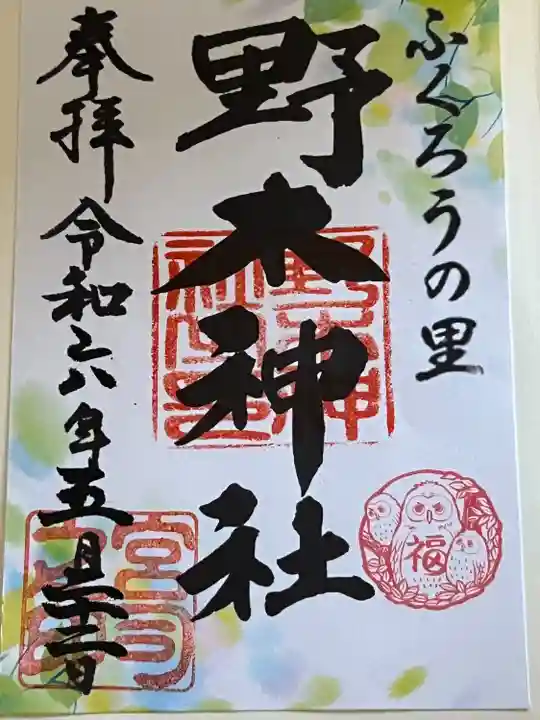 ふくろうの里
野木神社
福
奉拝 令和六年五月二十二日